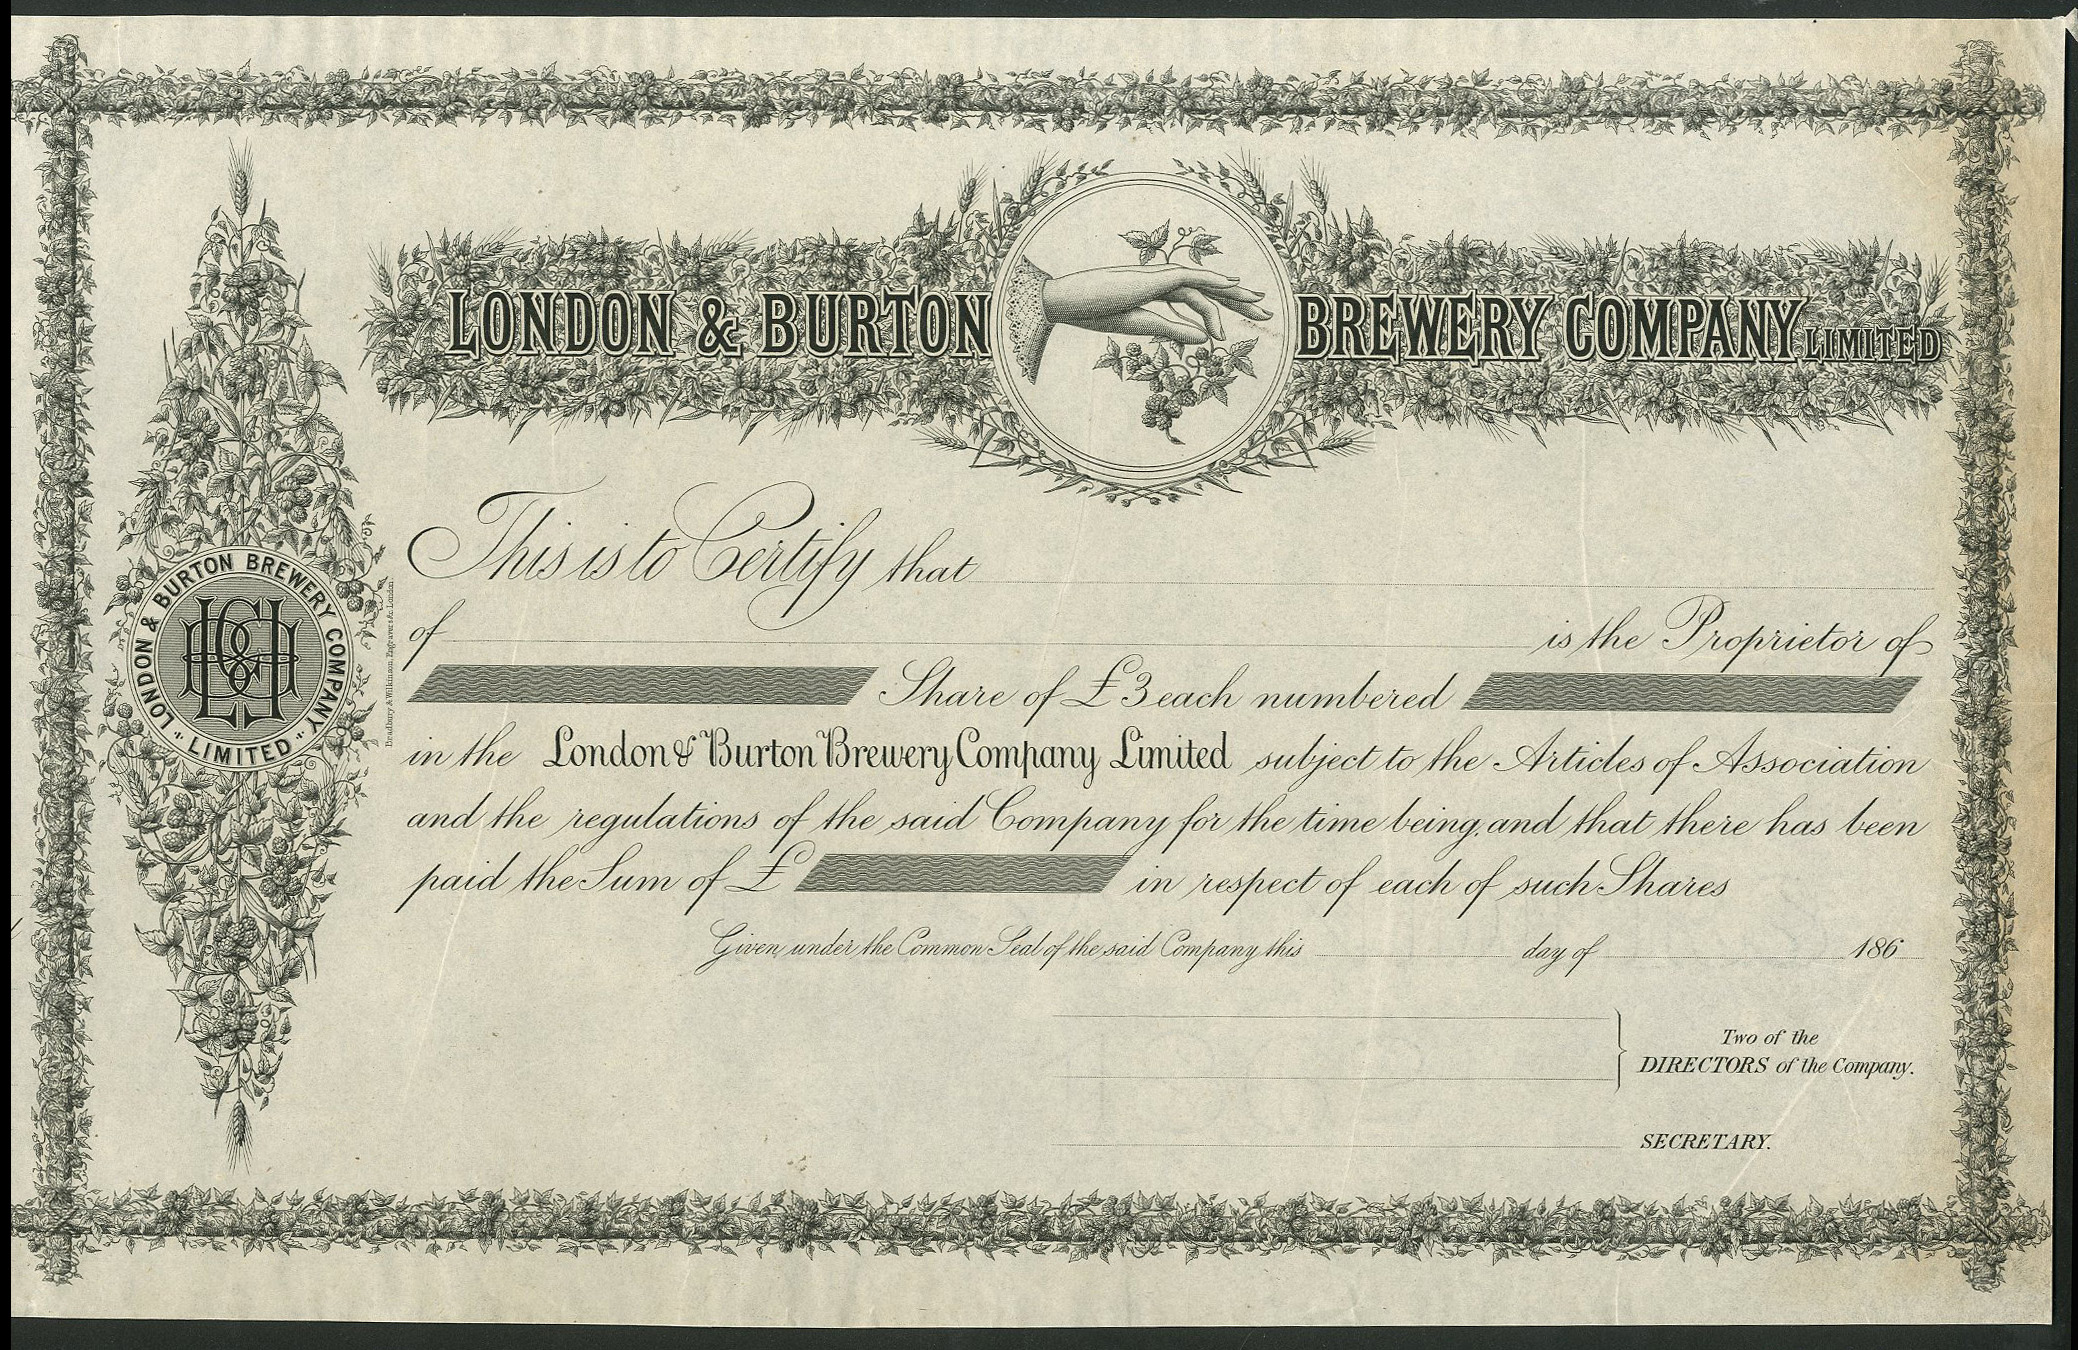 LONDON & BURTON BREWERY COMPANY LIMITED
This is to Certify that
of is the Proprietor of
Share of £3 each numbered
in the London & Burton Brewery Company Limited subject to the Articles of Association
and the regulations of the said Company for the time being, and that there has been
paid the Sum of £ in respect of each of such Shares
Given under the Common Seal of the said Company this day of 186
Two of the
DIRECTORS of the Company.
SECRETARY.
LONDON & BURTON BREWERY COMPANY
LIMITED
Bradbury & Wilkinson, Engravers &c. London.